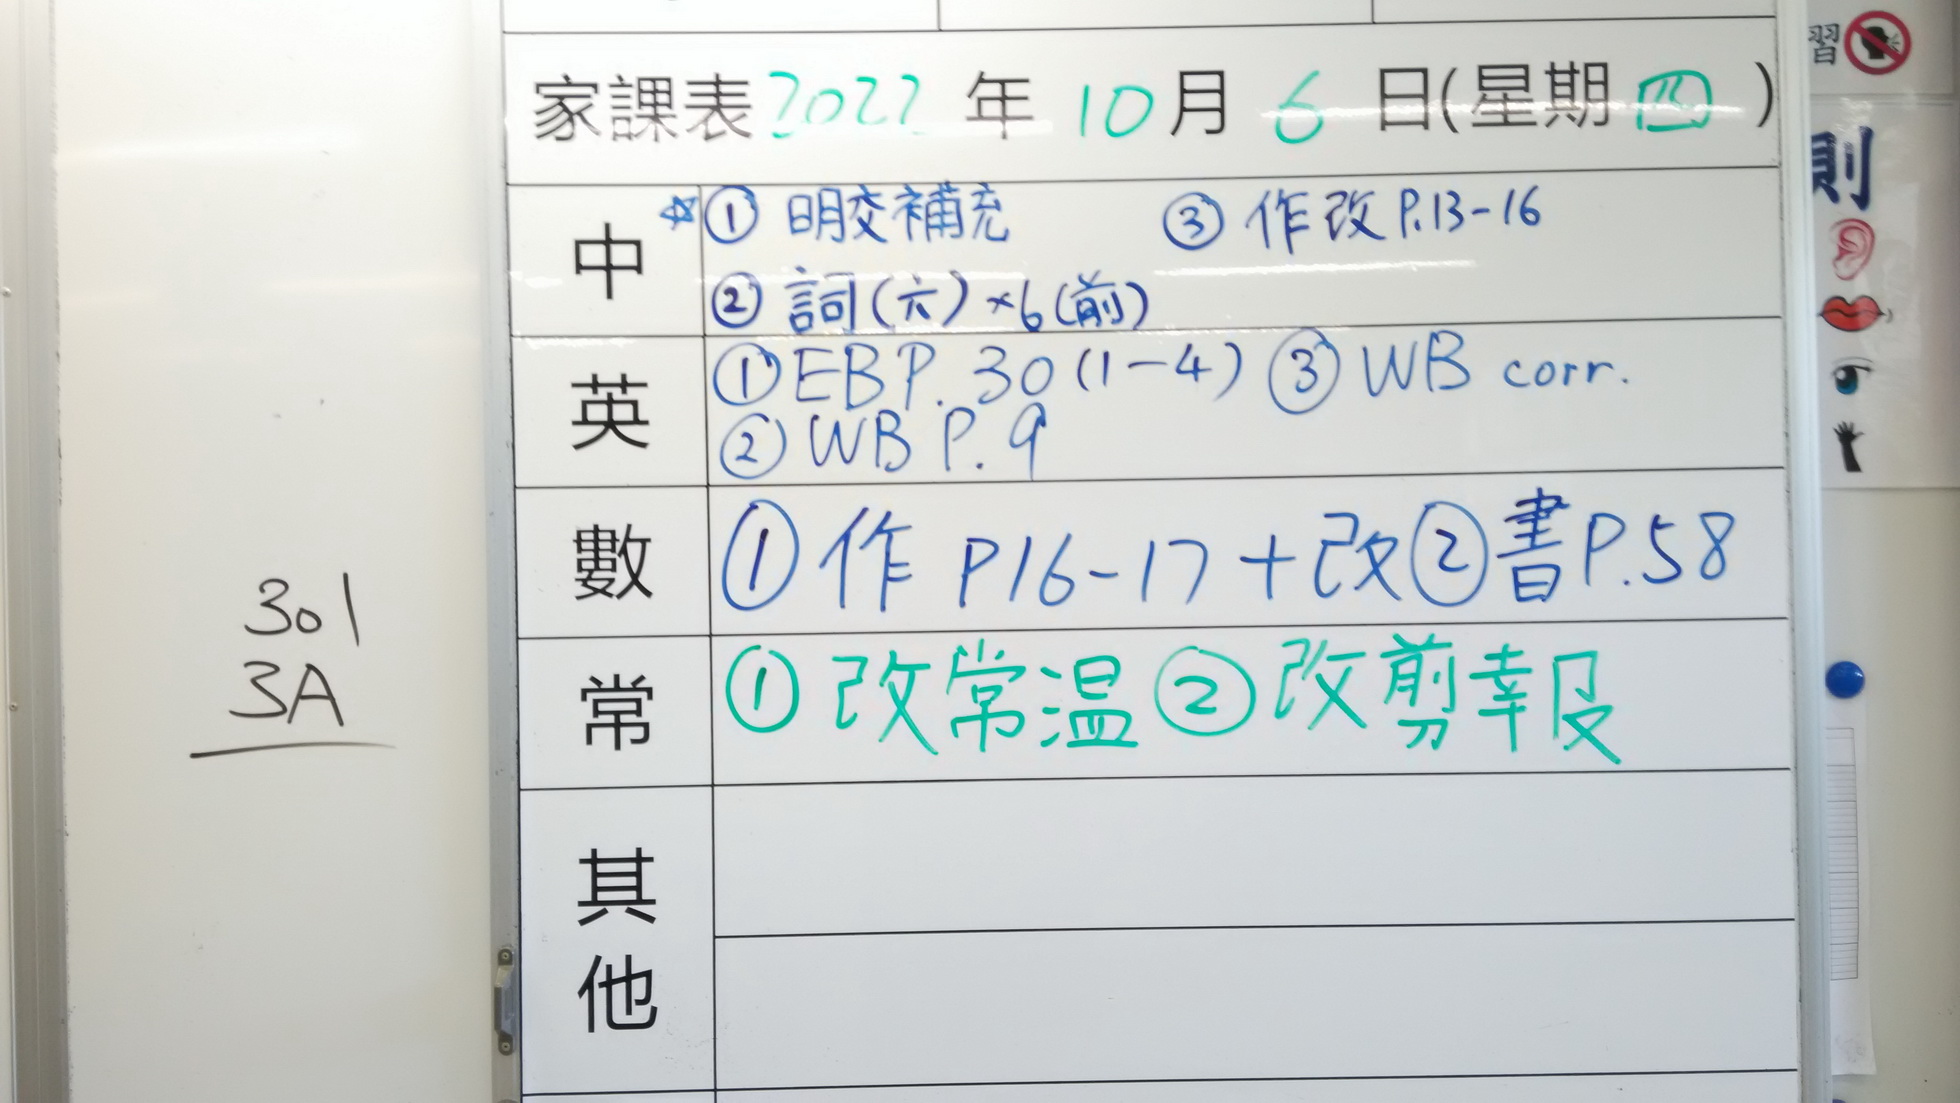 家課表 2022 年 10 月 6 日(星期 四 )
中
☆① 明交補充 ③ 作改 P.13-16
② 詞(六)×6(前)
英
① EB P. 30 (1-4) ③ WB corr.
② WB P. 9
數
① 作 P16-17 + 改 ② 書 P.58
常
① 改常温 ② 改剪報
其他
301
3A
習
則